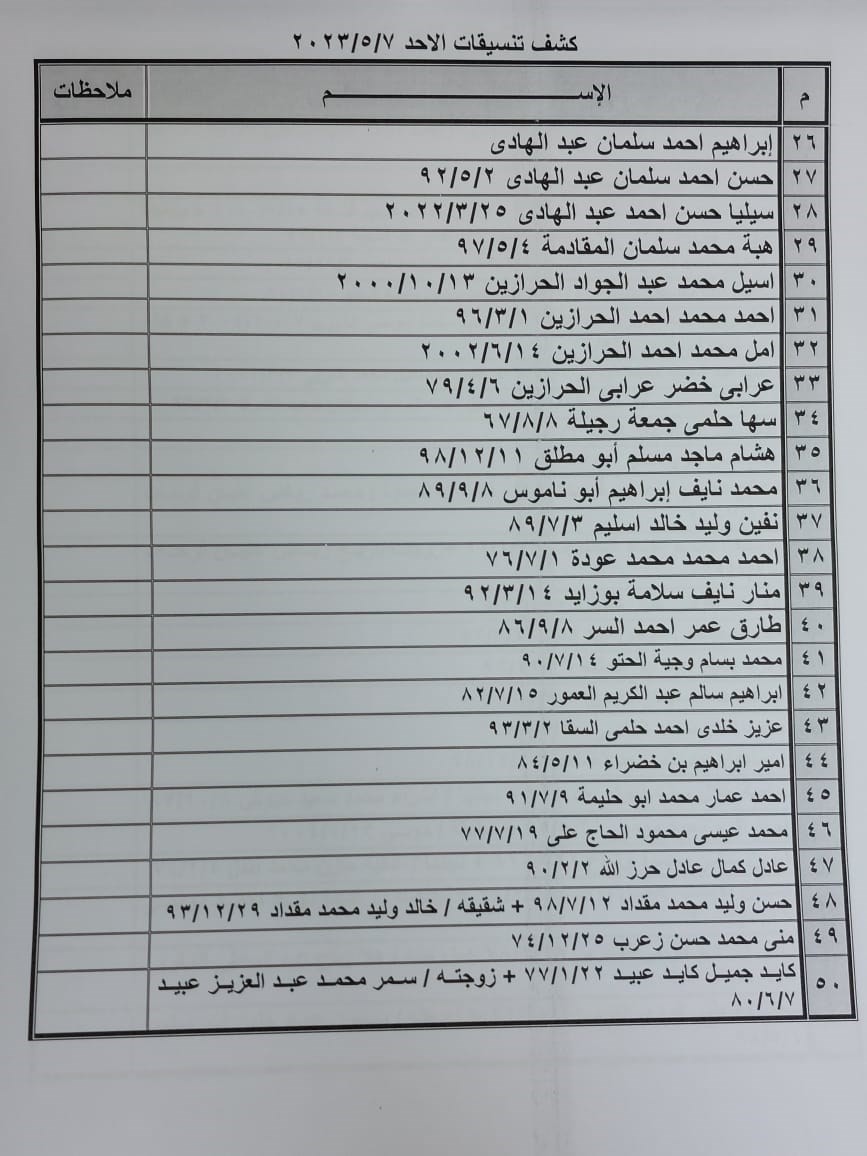 كشف تنسيقات الاحد ٢٠٢٣/٥/٧
م الإســــــــم ملاحظات
٢٦ إبراهيم احمد سلمان عبد الهادى
٢٧ حسن احمد سلمان عبد الهادى ٩٢/٥/٢
٢٨ سيليا حسن احمد عبد الهادى ٢٠٢٢/٣/٢٥
٢٩ هبة محمد سلمان المقادمة ٩٧/٥/٤
٣٠ اسيل محمد عبد الجواد الحرازين ٢٠٠٠/١٠/١٣
٣١ احمد محمد احمد الحرازين ٩٦/٣/١
٣٢ امل محمد احمد الحرازين ٢٠٠٢/٦/١٤
٣٣ عرابى خضر عرابى الحرازين ٧٩/٤/٦
٣٤ سها حلمى جمعة رجيلة ٦٧/٨/٨
٣٥ هشام ماجد مسلم أبو مطلق ٩٨/١٢/١١
٣٦ محمد نايف إبراهيم أبو ناموس ٨٩/٩/٨
٣٧ نفين وليد خالد اسليم ٨٩/٧/٣
٣٨ احمد محمد محمد عودة ٧٦/٧/١
٣٩ منار نايف سلامة بوزايد ٩٢/٣/١٤
٤٠ طارق عمر احمد السر ٨٦/٩/٨
٤١ محمد بسام وجية الحتو ٩٠/٧/١٤
٤٢ ابراهيم سالم عبد الكريم العمور ٨٢/٧/١٥
٤٣ عزيز خلدى احمد حلمى السقا ٩٣/٣/٢
٤٤ امير ابراهيم بن خضراء ٨٤/٥/١١
٤٥ احمد عمار محمد ابو حليمة ٩١/٧/٩
٤٦ محمد عيسى محمود الحاج على ٧٧/٧/١٩
٤٧ عادل كمال عادل حرز الله ٩٠/٢/٢
٤٨ حسن وليد محمد مقداد ٩٨/٧/١٢ + شقيقه / خالد وليد محمد مقداد ٩٣/١٢/٢٩
٤٩ منى محمد حسن زعرب ٧٤/١٢/٢٥
٥٠ كايد جميل كايد عبيد ٧٧/١/٢٢ + زوجته / سمر محمد عبد العزيز عبيد
٨٠/٦/٧